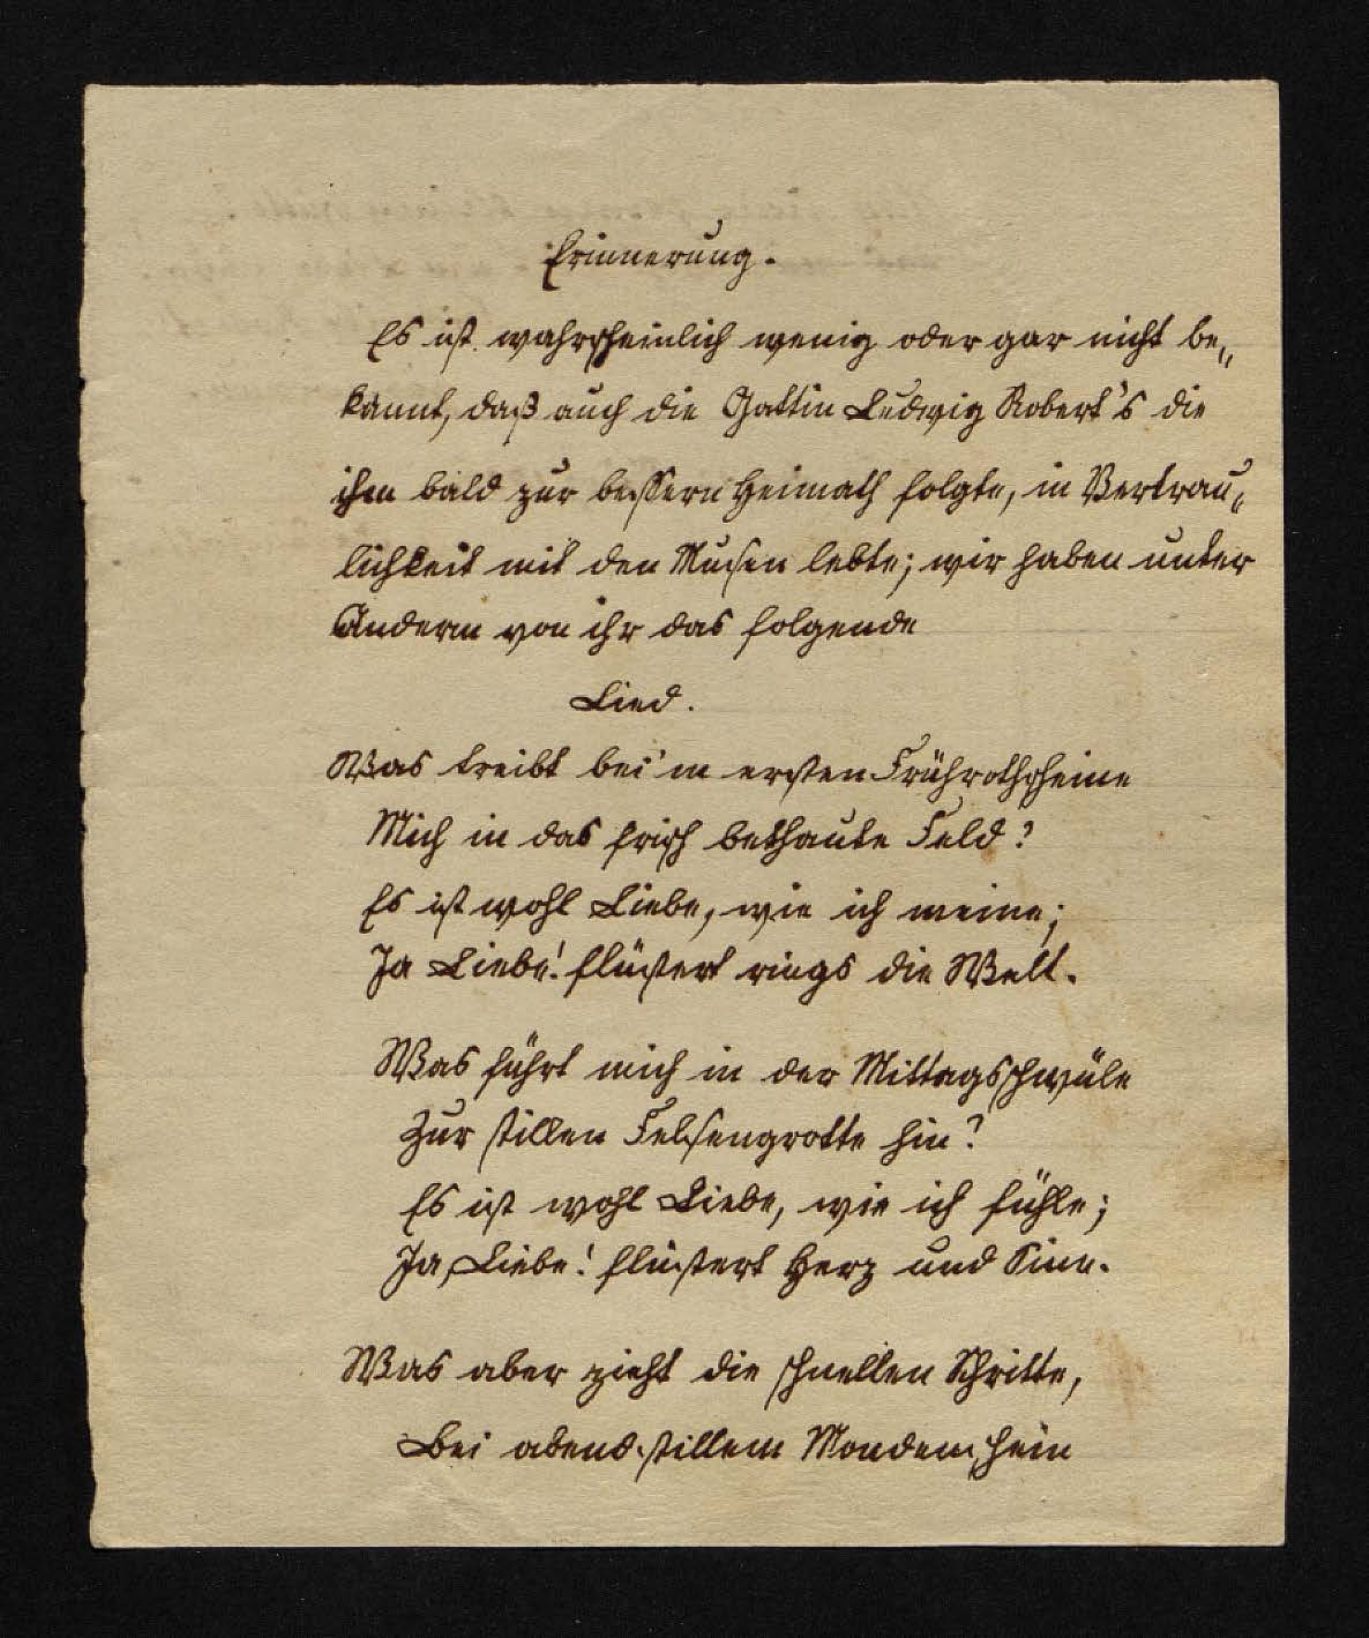 Erinnerung.
Es ist wahrscheinlich wenig oder gar nicht be„
kannt, daß auch die Gattin Ludwig Robert's die
ihm bald zur bessern Heimath folgte, in Vertrau„
lichkeit mit den Musen lebte; wir haben unter
Anderm von ihr das folgende
Lied.
Was treibt bei'm ersten Frührothscheine
Mich in das frisch bethaute Feld?
Es ist wohl Liebe, wie ich meine;
Ja Liebe! flüstert rings die Welt.
Was führt mich in der Mittagsschwüle
Zur stillen Felsengrotte hin?
Es ist wohl Liebe, wie ich fühle;
Ja, Liebe! flüstert Herz und Sinn.
Was aber zieht die schnellen Schritte,
Bei abendstillem Mondenschein